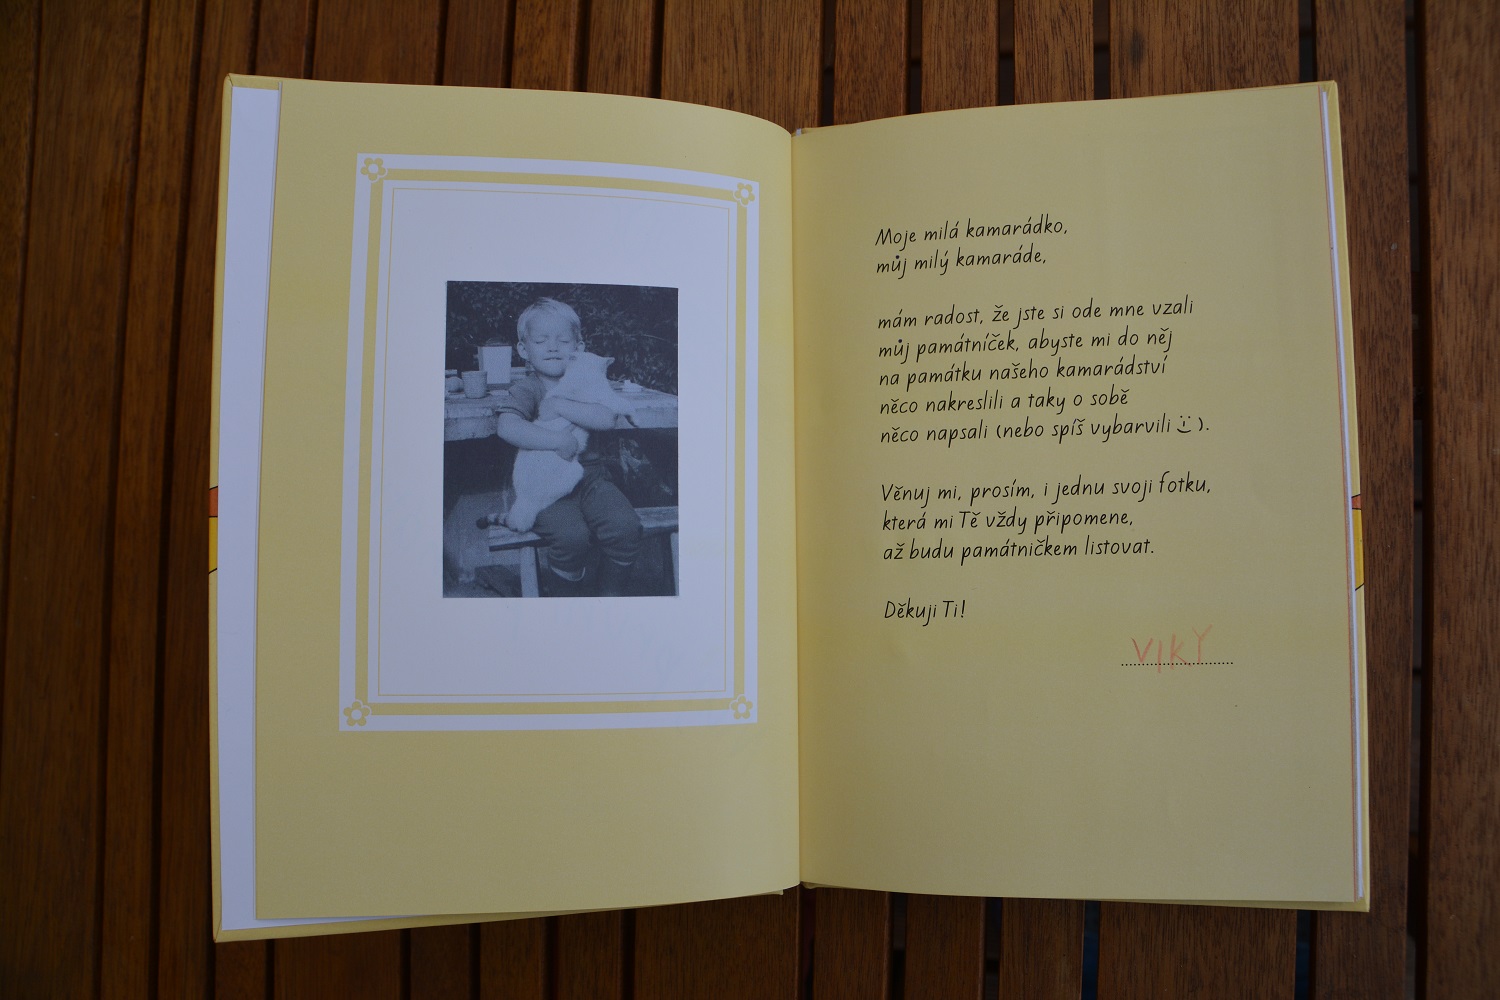 Moje milá kamarádko,
můj milý kamaráde,
mám radost, že jste si ode mne vzali
můj památníček, abyste mi do něj
na památku našeho kamarádství
něco nakreslili a taky o sobě
něco napsali (nebo spíš vybarvili ☺).
Věnuj mi, prosím, i jednu svoji fotku,
která mi Tě vždy připomene,
až budu památničkem listovat.
Děkuji Ti!
VIKY